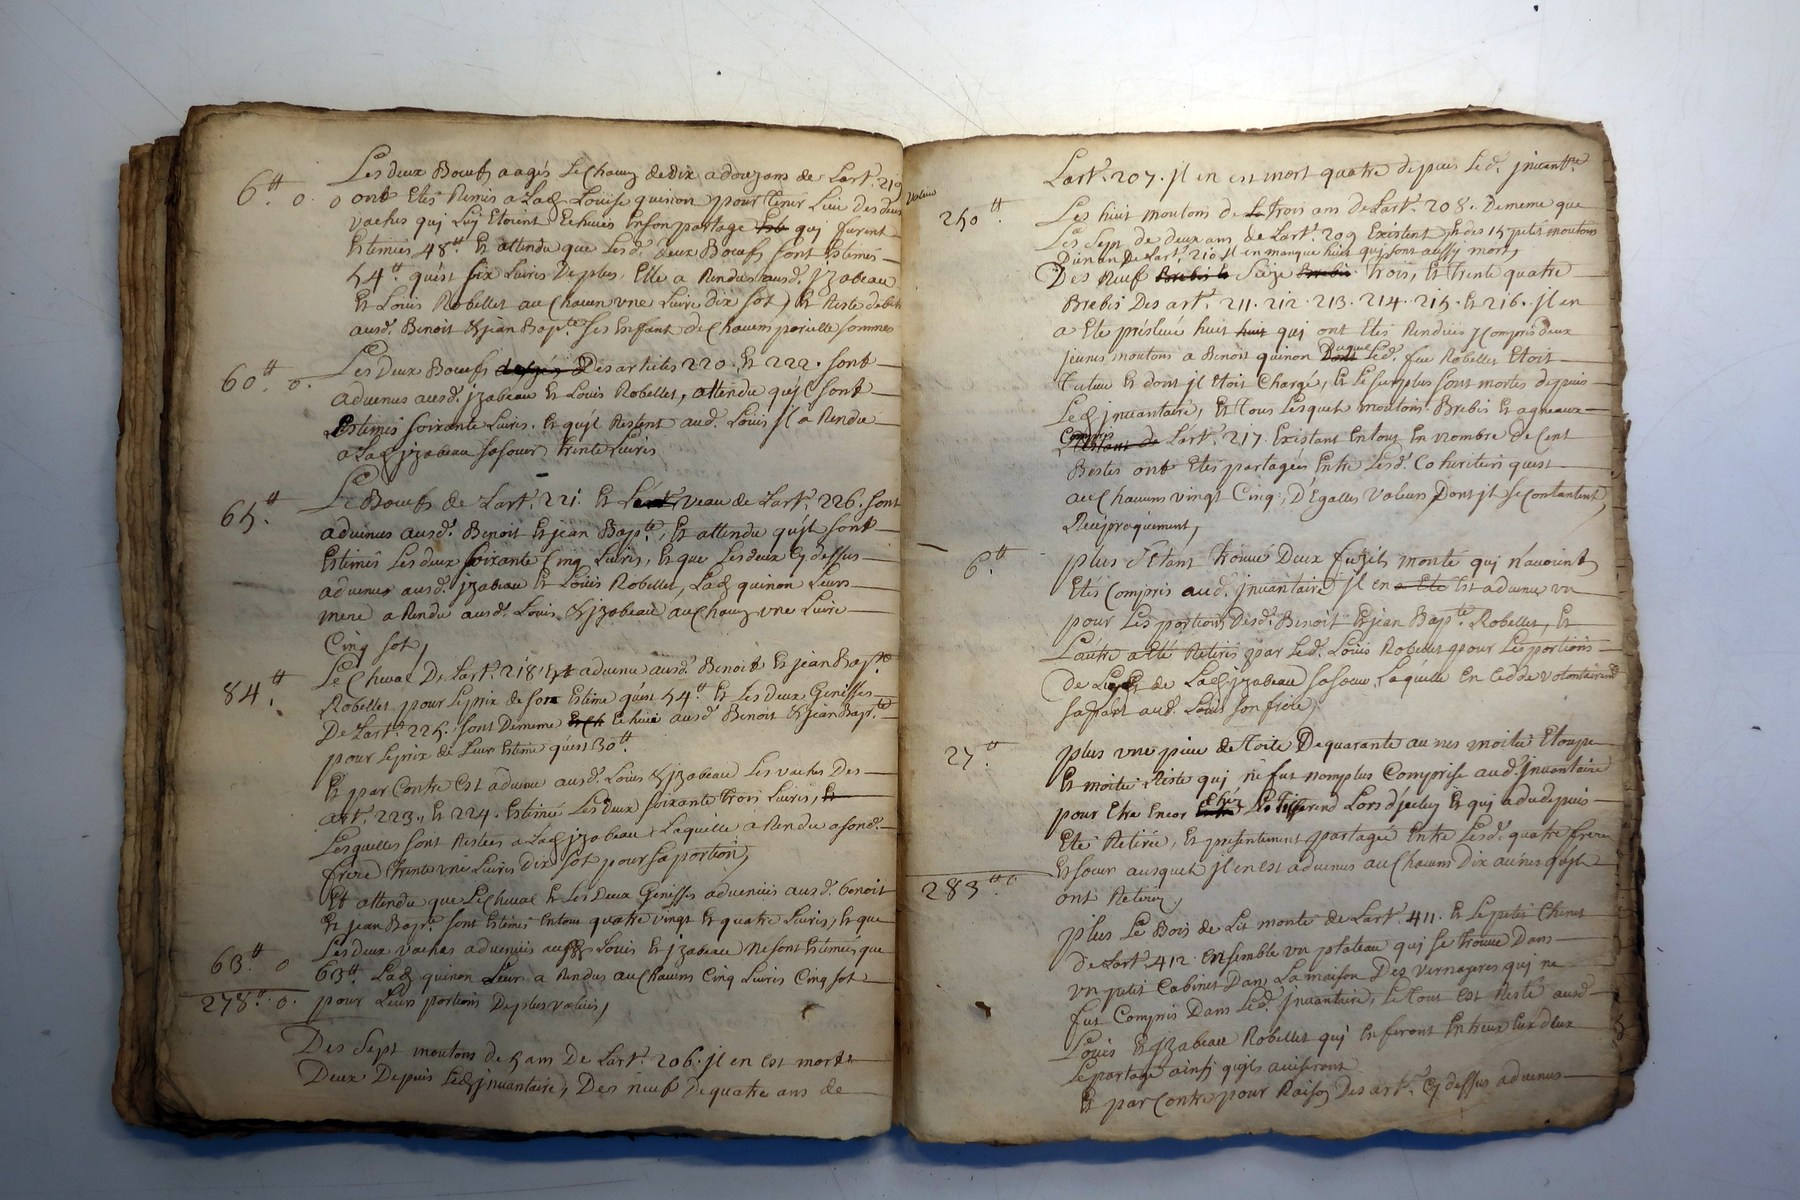 Les deux Bœufs aagés Le Chaung de dix a douz ans de Lart. 219
6tt. 0. 0 ont Etés Remis a Lad. Loüise quinon pour Tenir Lieu des deux
vaches quj Luj Etoient Echuies En son partage quj furent
Estimées 48tt Et attendu que Lesd. deux Bœufs sont Estimés
54tt quest six Livres de plus, Elle a Rendu ausd. jzabeau
Et Loüis Robellet au Chacun vne Livre dix sot, Et Reste
ausd. Benoit Et jean Bapte. ses Enfant de Chacun parielle sommes
60tt. 0. Les Deux Bœufs Des articles 220. Et 222. sont
advenus ausd. jzabeau Et Loüis Robellet, attendu qujl sont
Estimés soixante Livres. Et qujl Restent aud. Loüis jl a Rendu
a Lad. jzabeau sa soeur trente Livres
65tt. Le Bœufs de Lart. 221. Et veau de Lart. 226. sont
advenus ausd. Benoit Et jean Bapte., Et attendu qujl sont
Estimés Les deux soixante Cinq Livres, Et que Les deux Cy dessus
advenus ausd. jzabeau Et Loüis Robellet, Lad. quinon Leurs
mere a Rendu ausd. Loüis Et jzabeau au Chaung vne Livre
Cinq sot,
84tt. Le Cheval De Lart. 218 Est advenu ausd. Benoit Et jean Bapte.
Robellet pour Le prix de son Estime quest 54tt. Et Les deux Genisses
De Lart. 225. sont Demême Echuee ausd. Benoit Et jean Bapte.
pour Le prix de Leur Estime quest 30tt.
Et par Contre Est advenu ausd. Loüis Et jzabeau Les vaches Des
art. 223., Et 224. Estimée Les Deux soixante trois Livres, Et
Lesquelles sont Restées a Lad. jzabeau Laquelle a Rendu a sond.
frere trente vne Livres Dix sot pour sa portion,
Et attendu que Le Cheval Et Les Deux Genisses advenües ausd. benoit
Et jean Bapt. sont Estimés Entout quatre vingt Et quatre Livres, Et que
Les Deux vaches advenüés ausd. Loüis Et jzabeau ne sont Estimés que
63tt 0 63tt Lad. quinon Leur a Rendus au Chacuns Cinq Livres Cinq sot
278tt. 0. pour Leurs portions De plus valües,
Des Sept moutons de 5 am De Lart. 206. jl en est mort
Deux Depuis Led. jnuantaire, Des neuf De quatre ans de
valeur
Lart. 207. jl en est mort quatre depuis Led. jnuantre.
250tt Les huit moutons de trois am de Lart. 208. Demême que
Les Sept de deux am de Lart. 209 Existent, Et des 15 petit moutons
Dun an De Lart. 210 jl en manque huit quj sont aussy morts
Des Neuf Seize trois, Et trente quatre
Brebis Des art. 211. 212. 213. 214. 215. Et 216. jl en
a Eté prisleué huit quj ont Etés Rendües y Compris deux
jeunes moutons a Benoit quinon Duquel Led. feu Robellet Etoit
Tuteur Et dont jl Etoit Chargé, Et Le surplus sont mortes depuis
Led. jnuantaire, Et Tous Lesquels moutons Brebis Et agneaux
Compris Lart. 217. Existant En tout En nombre de Cent
Bestes ont Etés partagées Entre Lesd. Coheritiers quest
au Chacuns vingt Cinq, D'Egalles valeurs Dont jl se Contantent
Reciproquement,
6tt. plus S'Etant trouué Deux fuzils monté quj n'auoient
Etés Compris aud. jnuantaire jl en Est advenu un
pour Les portions Desd. Benoit Et jean Bapte. Robellet, Et
Lautre a Eté Retirés par Led. Loüis Robellet pour Les portions
De Luj Et de Lad. jzabeau sa soeur, Laquelle En Cedde volontairemt
sa part aud. Loüis son frere,
27tt. plus vne piece de toile De quarante aunes moitie Etoupe
Et moitie Riste quj ne fut nomplus Comprise aud. jnuantaire
pour Etre Encor Chéz Le Lors d'jceluy Et quj a du depuis
Eté Retirée, Et presentement partagée Entre Lesd. quatre freres
Et soeur ausquels jl en est advenus au Chacuns Dix aunes qu'jl
283tt. 0 ont Retirez,
plus Le Bois de Lit monté de Lart. 411. Et Le petit Chenet
de Lart. 412. Ensemble vn plateau quj se trouve Dans
vn petit Cabinet Dans La maison Des vernayeres quj ne
fut Compris Dans Led. jnuantaire, Le tout Est Resté ausd.
Loüis Et jzabeau Robellet quj En feront Entreux Eux deux
Le partage ainsi qujls auiseront
Et par Contre pour Raison Des art. Cy dessus advenus